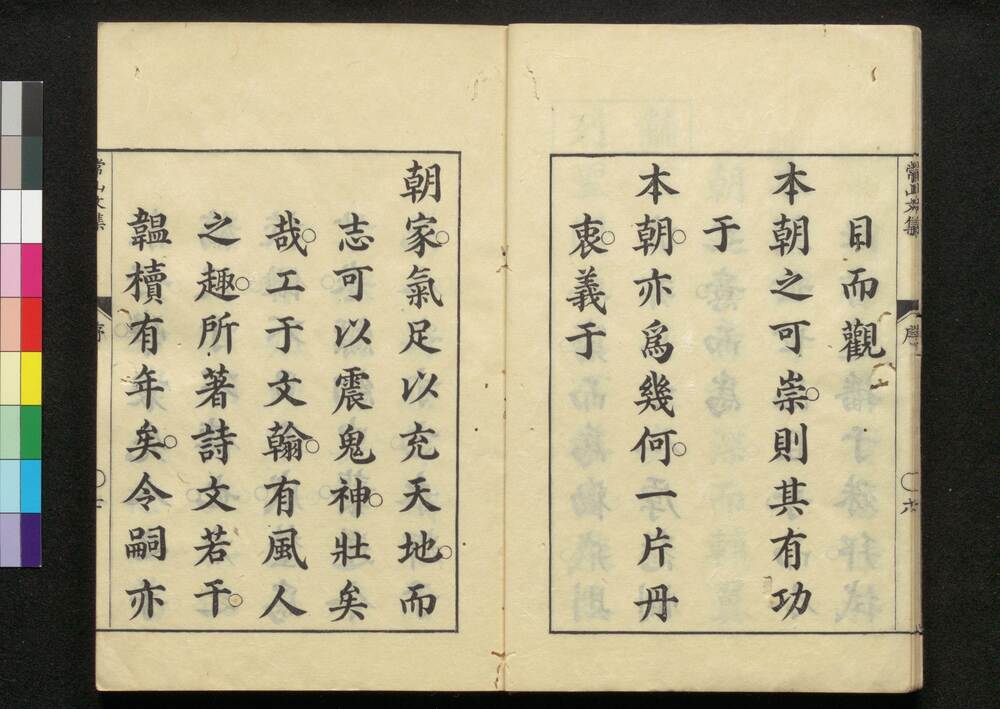 目而觀
本朝之可崇。則其有功
于
本朝。亦爲幾何。一片丹
衷。義于
常山文集
序
六
朝家。氣足以充天地。而
志可以震鬼神。壯矣
哉。工于文翰。有風人
之趣。所著詩文若干。
韞櫝有年矣。令嗣亦
常山文集
序
七